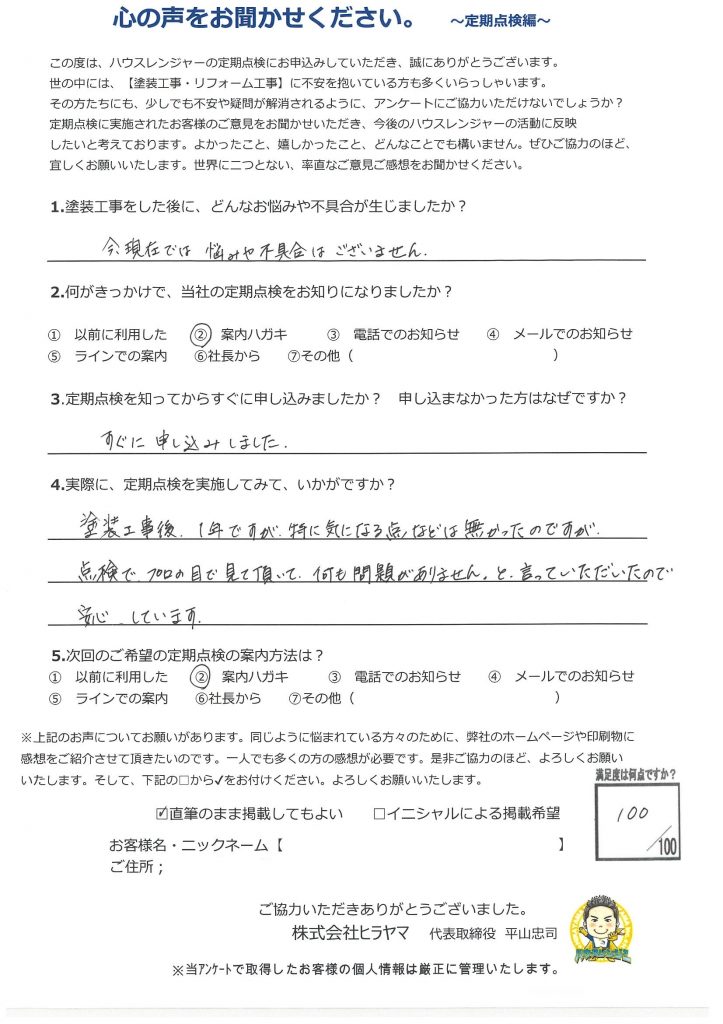 心の声をお聞かせください。 ～定期点検編～
この度は、ハウスレンジャーの定期点検にお申込みしていただき、誠にありがとうございます。
世の中には、【塗装工事・リフォーム工事】に不安を抱いている方も多くいらっしゃいます。
その方たちにも、少しでも不安や疑問が解消されるように、アンケートにご協力いただけないでしょうか？
定期点検に実施されたお客様のご意見をお聞かせいただき、今後のハウスレンジャーの活動に反映
したいと考えております。よかったこと、嬉しかったこと、どんなことでも構いません。ぜひご協力のほど、
宜しくお願いいたします。世界に二つとない、率直なご意見ご感想をお聞かせください。
1.塗装工事をした後に、どんなお悩みや不具合が生じましたか？
今、現在では 悩みや不具合は ございません.
2.何がきっかけで、当社の定期点検をお知りになりましたか？
① 以前に利用した ② 案内ハガキ ③ 電話でのお知らせ ④ メールでのお知らせ
⑤ ラインでの案内 ⑥社長から ⑦その他（ ）
3.定期点検を知ってからすぐに申し込みましたか？ 申し込まなかった方はなぜですか？
すぐに 申し込み しました.
4.実際に、定期点検を実施してみて、いかがですか？
塗装工事後、1年ですが、特に気になる点などは無かったのですが、
点検で、プロの目で見て頂いて、何も問題がありません。と、言っていただいたので
安心 しています.
5.次回のご希望の定期点検の案内方法は？
① 以前に利用した ② 案内ハガキ ③ 電話でのお知らせ ④ メールでのお知らせ
⑤ ラインでの案内 ⑥社長から ⑦その他（ ）
※上記のお声についてお願いがあります。同じように悩まれている方々のために、弊社のホームページや印刷物に
感想をご紹介させて頂きたいのです。一人でも多くの方の感想が必要です。是非ご協力のほど、よろしくお願い
いたします。そして、下記の□から✓をお付けください。よろしくお願いいたします。
満足度は何点ですか？
☑直筆のまま掲載してもよい □イニシャルによる掲載希望
100
/100
お客様名・ニックネーム【 】
ご住所；
ご協力いただきありがとうございました。
株式会社ヒラヤマ 代表取締役 平山忠司
※当アンケートで取得したお客様の個人情報は厳正に管理いたします。